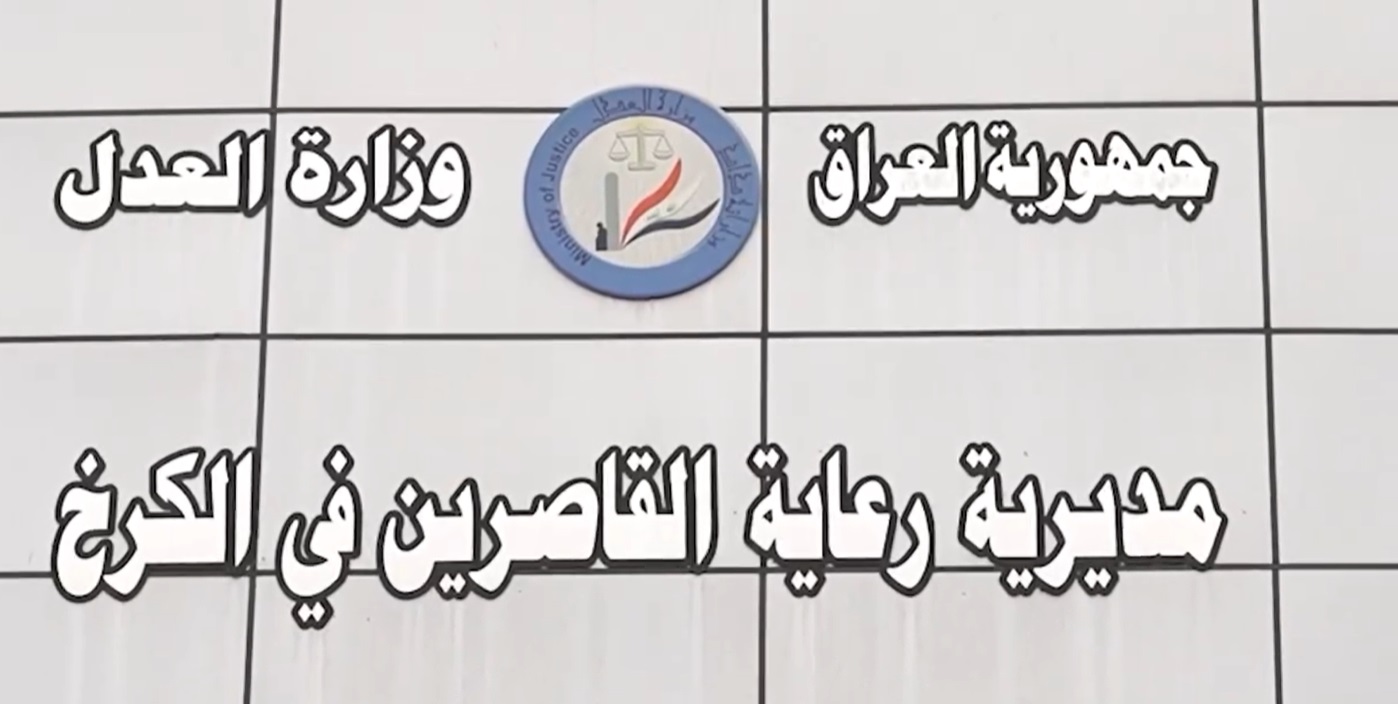 جمهورية العراق
وزارة العدل
Ministry of Justice
مديرية رعاية القاصرين في الكرخ